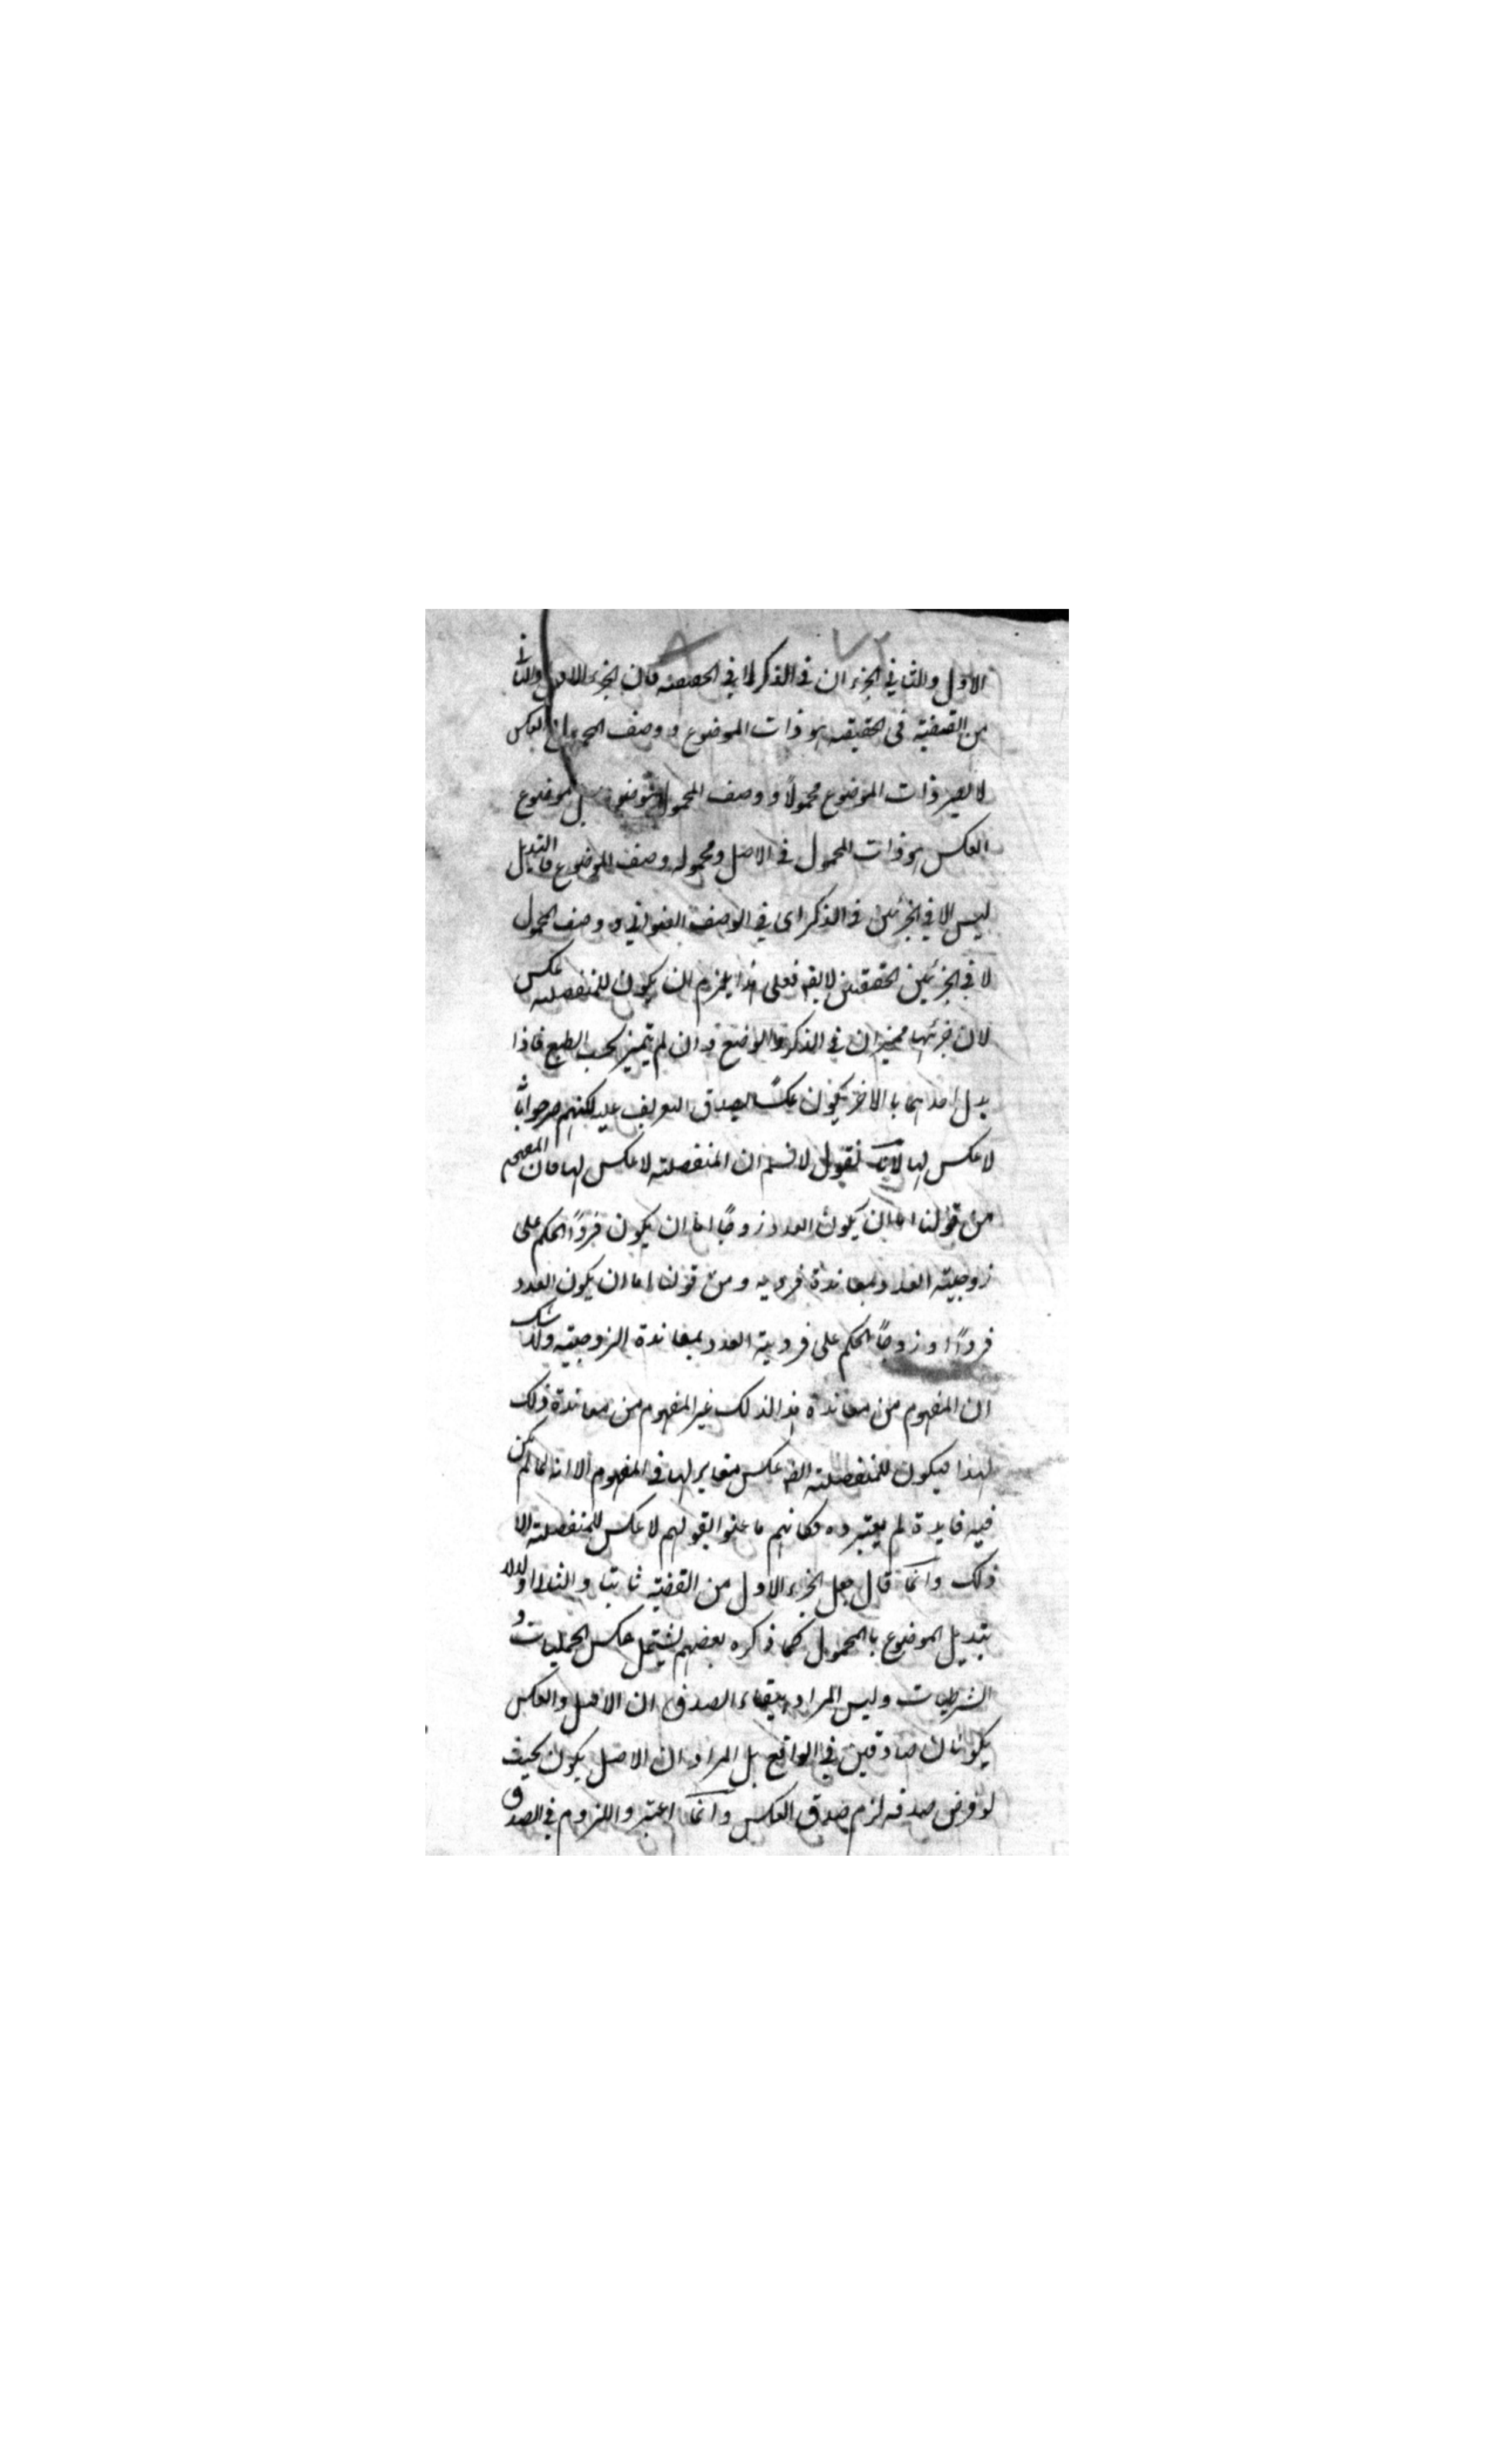 ٧٢ ٨
الاول والثاني الجزءان في الذكر لا في الحقيقة فان الجزء الاول والثاني
من القضية في الحقيقة هو ذات الموضوع ووصف المحمول العكس
لا يصير ذات الموضوع محمولاً ووصف المحمول بل موضوع
العكس هو ذات المحمول في الاصل ومحموله وصف الموضوع فالتبديل
ليس الا في الجزئين في الذكر اى في الوصف العنواني ووصف المحمول
لا في الجزئين الحقيقين لايقه فعلى هذا يلزم ان يكون للمنفصلة عكس
لان جزئيها مميزان في الذكر والوضع وان لم تميز بحسب الطبع فاذا
بدل احدهما بالاخر يكون عكسًا لصدق التعريف عليه لكنهم صرحوا بانها
لا عكس لها لانا نقول لا نسلم ان المنفصلة لا عكس لها فان المفهوم
من قولنا اما ان يكون العدد زوجًا اما ان يكون فردًا الحكم على
زوجية العدد بمعاندة فرديه ومن قولنا اما ان يكون العدد
فردًا او زوجًا الحكم على فردية العدد بمعاندة الزوجية ولا شك
ان المفهوم من معاندة هذا لذلك غير المفهوم من معاندة ذلك
لهذا فيكون للمنفصلة ايضه عكس مغاير لها في المفهوم الا انه لما لم يكن
فيه فايدة لم يعتبروه فكانهم ما عنوا بقولهم لا عكس للمنفصلة الا
ذلك وانما قال جعل الجزء الاول من القضية ثانيا والثاني اولا لا
تبديل الموضوع بالمحمول كما ذكره بعضهم ليشتمل عكس الحمليات و
الشرطيات وليس المراد ببقاء الصدق ان الاصل والعكس
يكونان صادقين في الواقع بل المراد ان الاصل يكون بحيث
لو فرض صدقه لزم صدق العكس وانما اعتبر واللزوم في الصدق